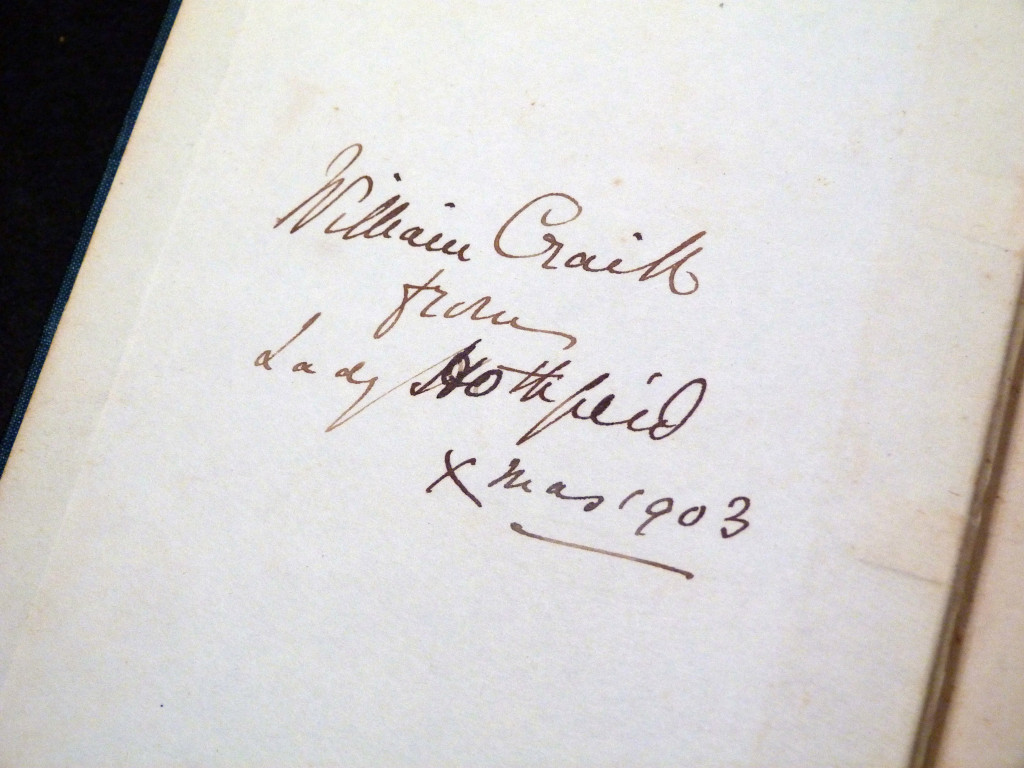 William Craik
from
Lady Hothfield
Xmas 1903